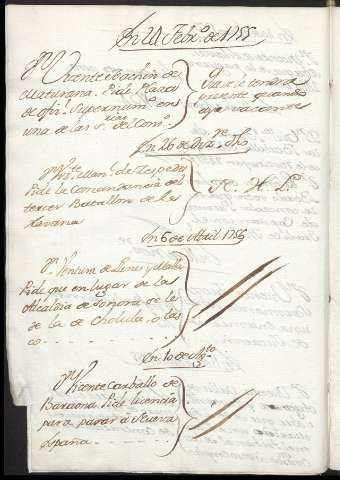 En 21 Febr.º de 1755
D.n Vicente Joachin de
Maturana. Pide Plaza
de ofiz.l Supernum.º en
una de las s.rias del Com.º
Que se le tendra
presente quando
aya vacante
En 26 de
D.n Man.l de Zespedes
Pide la Comandancia del
tercer Batallon de la
Havana
Fe. H. L.
En 6 de Abril 1755
D.n Ventura de
Pide que en lugar de la
Alcaldia de Sonora se le
de la de Cholula, o las
co
En 10 de Ag.to
D.n Vicente Carballo de
Baraona Pide licencia
para pasar à Nueva
España